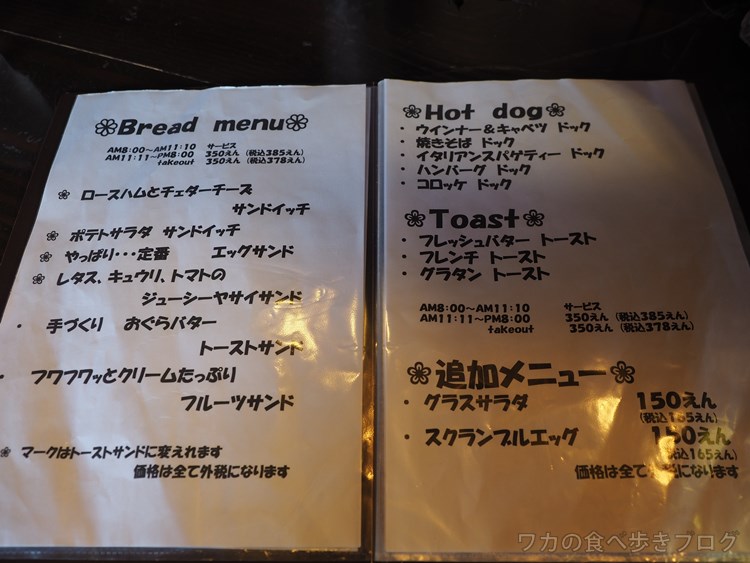 Bread menu
AM8:00～AM11:10 サービス
AM11:11～PM8:00 350えん (税込385えん)
takeout 350えん (税込378えん)
❀ ロースハムとチェダーチーズ
サンドイッチ
❀ ポテトサラダ サンドイッチ
❀ やっぱり・・・定番 エッグサンド
❀ レタス、キュウリ、トマトの
ジューシーヤサイサンド
・ 手づくり おぐらバター
トーストサンド
・ フワフワッとクリームたっぷり
フルーツサンド
❀ マークはトーストサンドに変えれます
価格は全て外税になります
Hot dog
・ ウインナー＆キャベツ ドック
・ 焼きそば ドック
・ イタリアンスパゲティー ドック
・ ハンバーグ ドック
・ コロッケ ドック
Toast
・ フレッシュバター トースト
・ フレンチ トースト
・ グラタン トースト
AM8:00～AM11:10 サービス
AM11:11～PM8:00 350えん (税込385えん)
takeout 350えん (税込378えん)
追加メニュー
・ グラスサラダ 150えん
(税込165えん)
・ スクランブルエッグ 150えん
(税込165えん)
価格は全て外税になります
ワカの食べ歩きブログ